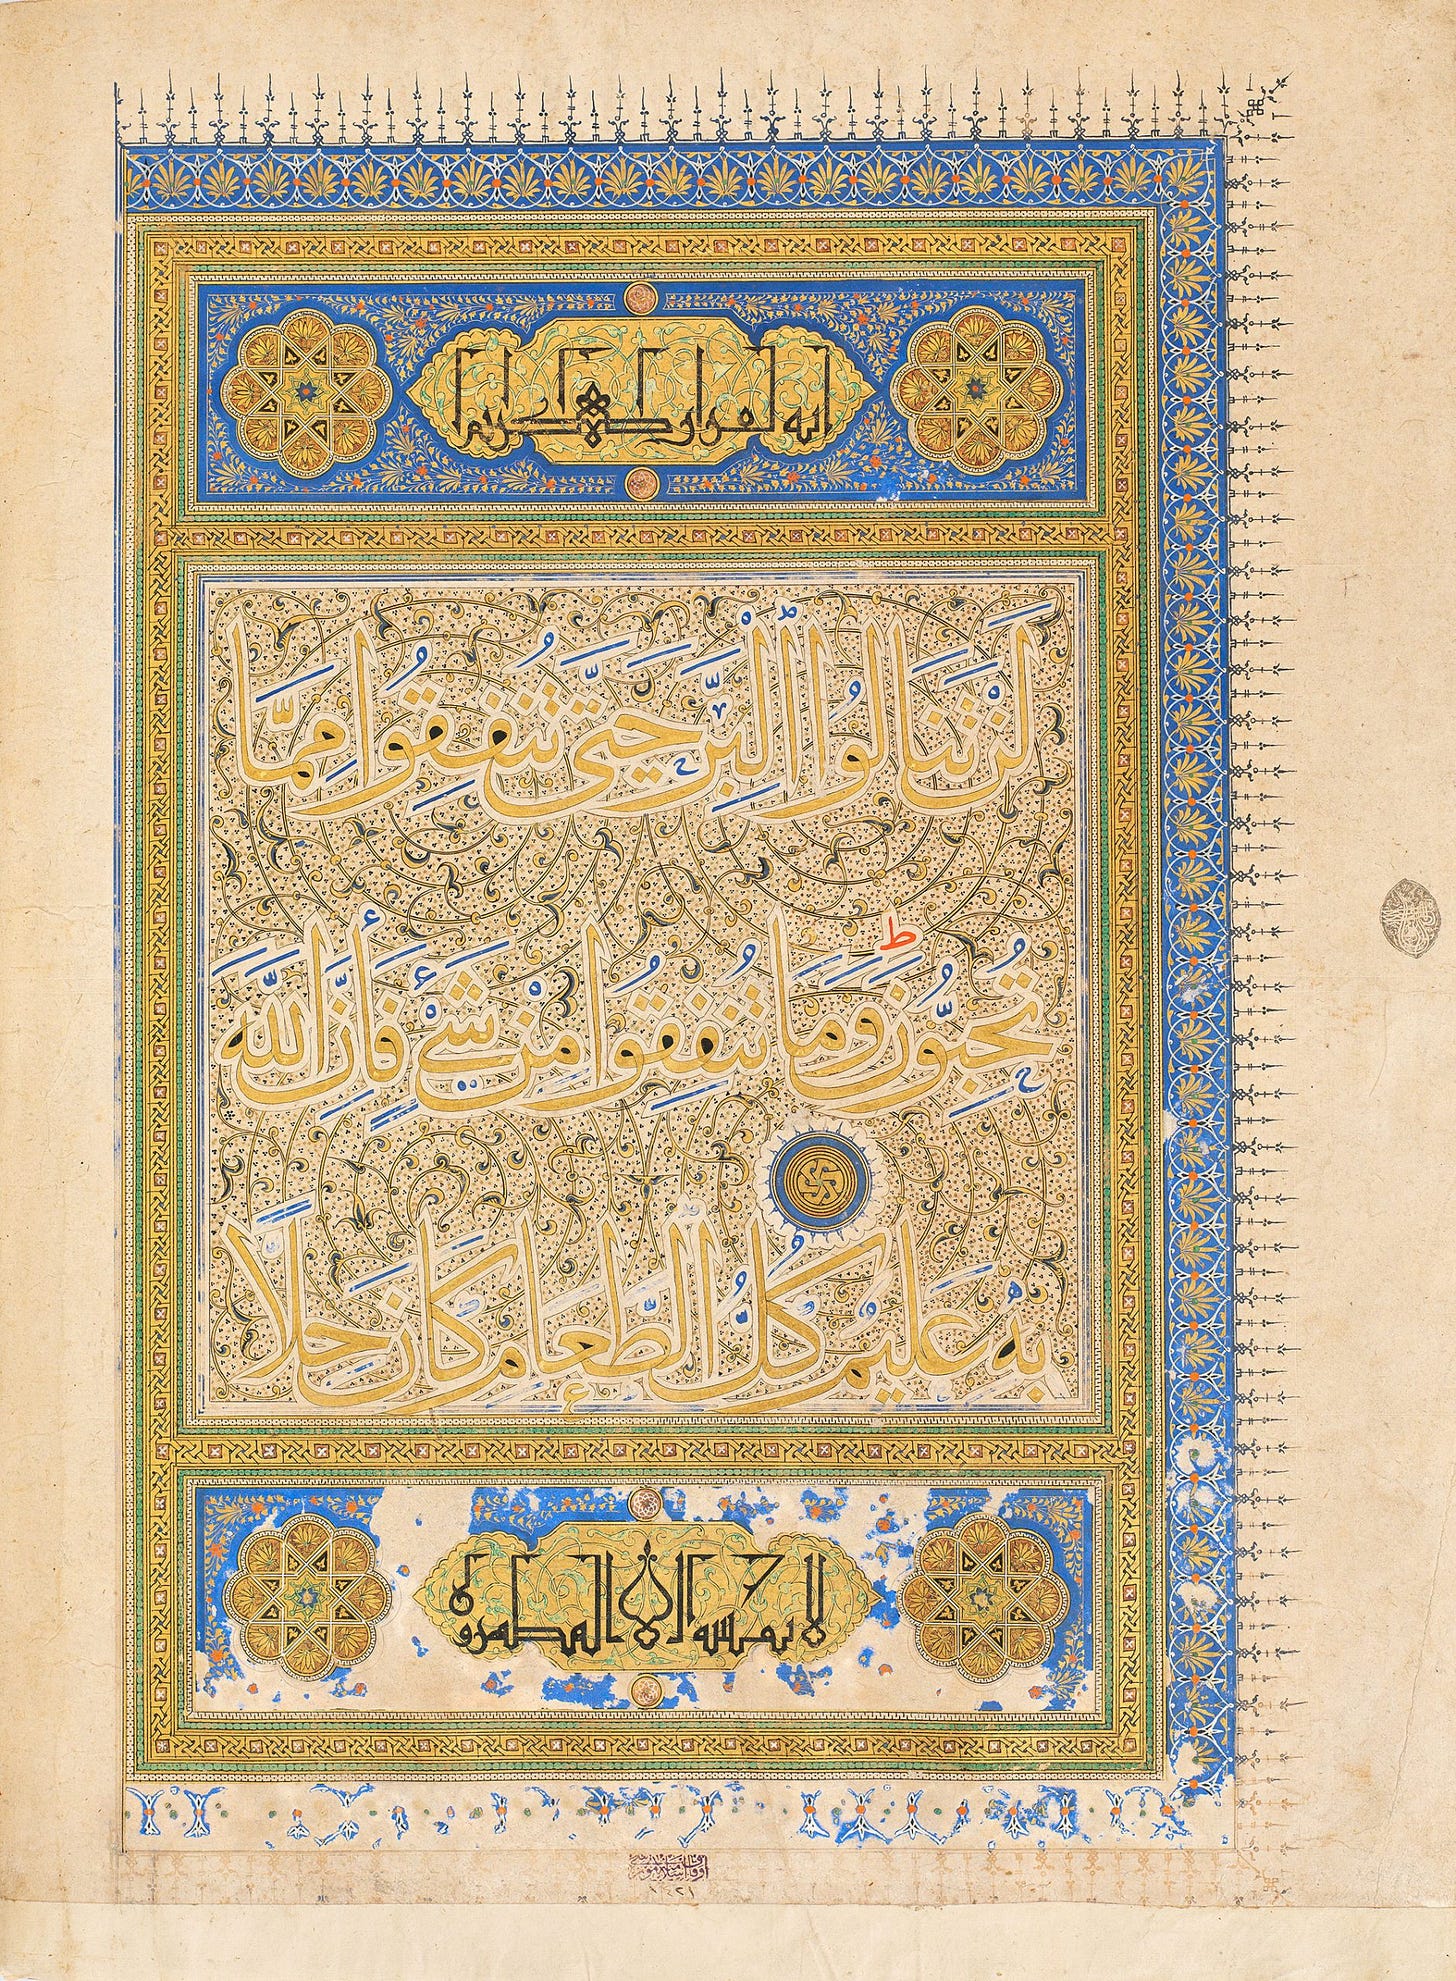 انه لقران كريم
لَنْ تَنَالُوا الْبِرَّ حَتَّى تُنْفِقُوا مِمَّا
تُحِبُّونَ ط وَمَا تُنْفِقُوا مِنْ شَيْءٍ فَإِنَّ اللَّهَ
بِهِ عَلِيمٌ كُلُّ الطَّعَامِ كَانَ حِلًّا
لا يمسه الا المطهرون